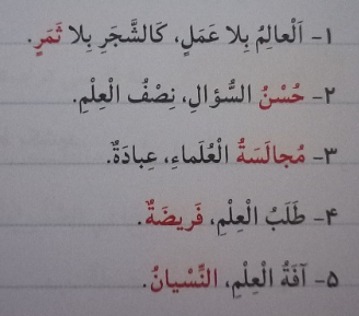 ۱- اَلْعالِمُ بِلا عَمَلٍ، کَالشَّجَرِ بِلا ثَمَرٍ.
۲- حُسْنُ السُّؤالِ، نِصْفُ الْعِلْمِ.
۳- مُجالَسَةُ الْعُلَماءِ، عِبادَةٌ.
۴- طَلَبُ الْعِلْمِ، فَریضَةٌ.
۵- آفَةُ الْعِلْمِ، النِّسْیانُ.